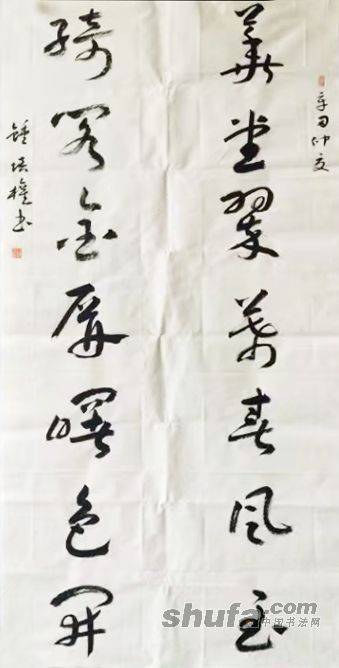 辛丑仲夏
華堂翠幕春風至
綺閣金屏曙色開
鍾 權書
shufa.com
中国书法网